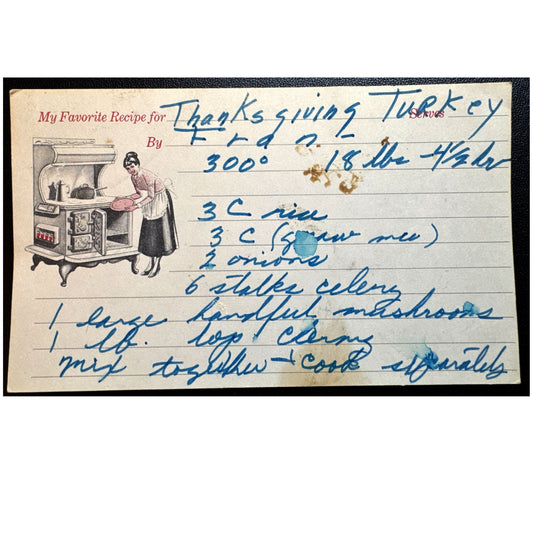 My Favorite Recipe for Thanksgiving Turkey Serves
By Fran
300° 18 lbs - 4½ hr
3 C rice
3 C
2 onions
6 stalks celery
1 large handful mushrooms
1 lb. top
mix together + cook separately